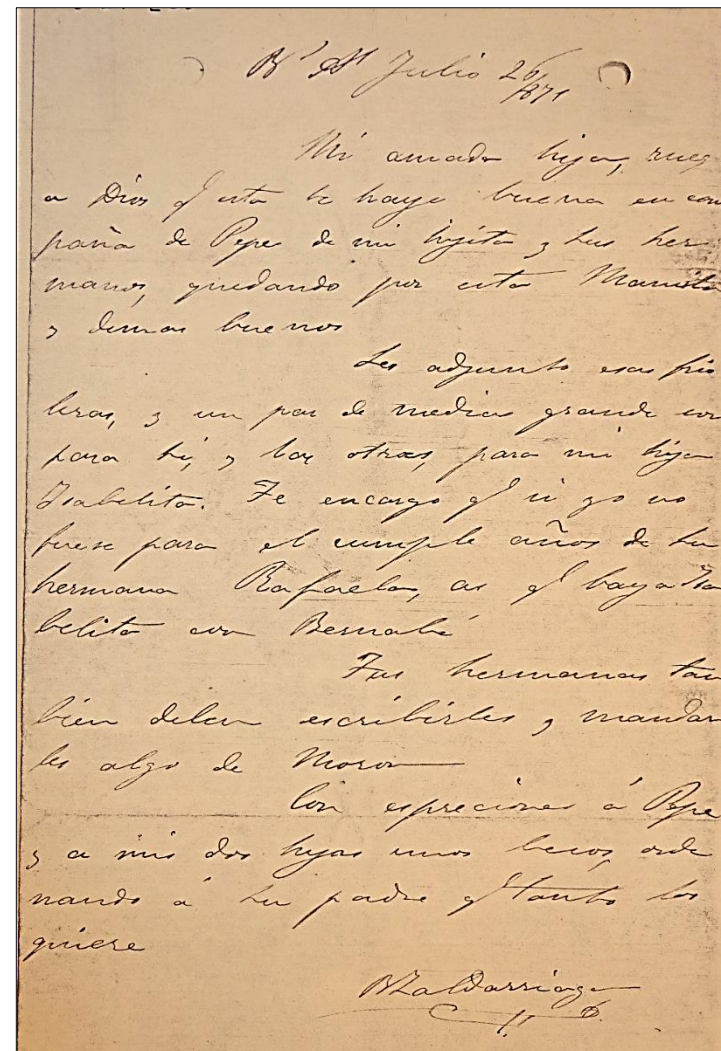 Bs As Julio 26/871
Mi amada hija, rueg
a Dios q esta te haye buena en com
paña de Pepe de mi hijita y tus her
manos, quedando por esta Manuela
y demas buenos
Les adjunto esas
y un par de medias grande
para ti, y las otras, para mi hija
Isabelita. Te encargo q si yo no
fuese para el cumple años de tu
hermana Rafaela, as q baya Isa
belita con Bernabé
Tus hermanas tam
bien deben escribirles y mandar
les algo de Moron
Con espreciones á Pepe
y a mis dos hijas unos besos, orde
nando á tu padre q tanto las
quiere
B Zaldarriaga